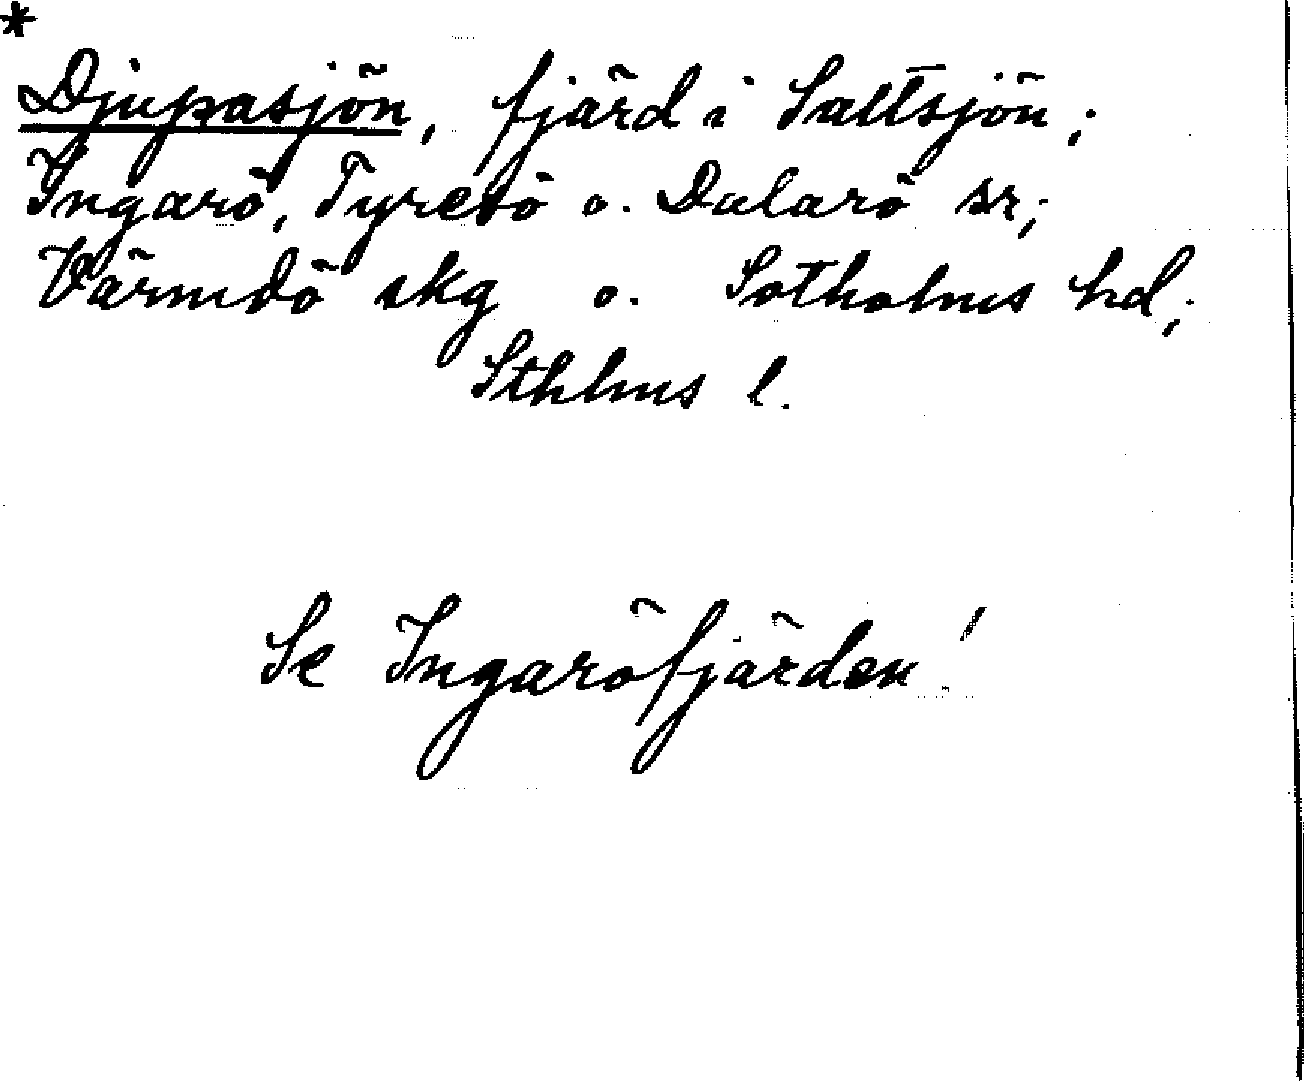 *
Djupasjön, fjärd i Saltsjön;
Ingarö, Tyresö o. Dalarö sr;
Värmdö skg o. Sotholms hd;
Sthlms l.
Se Ingaröfjärden!